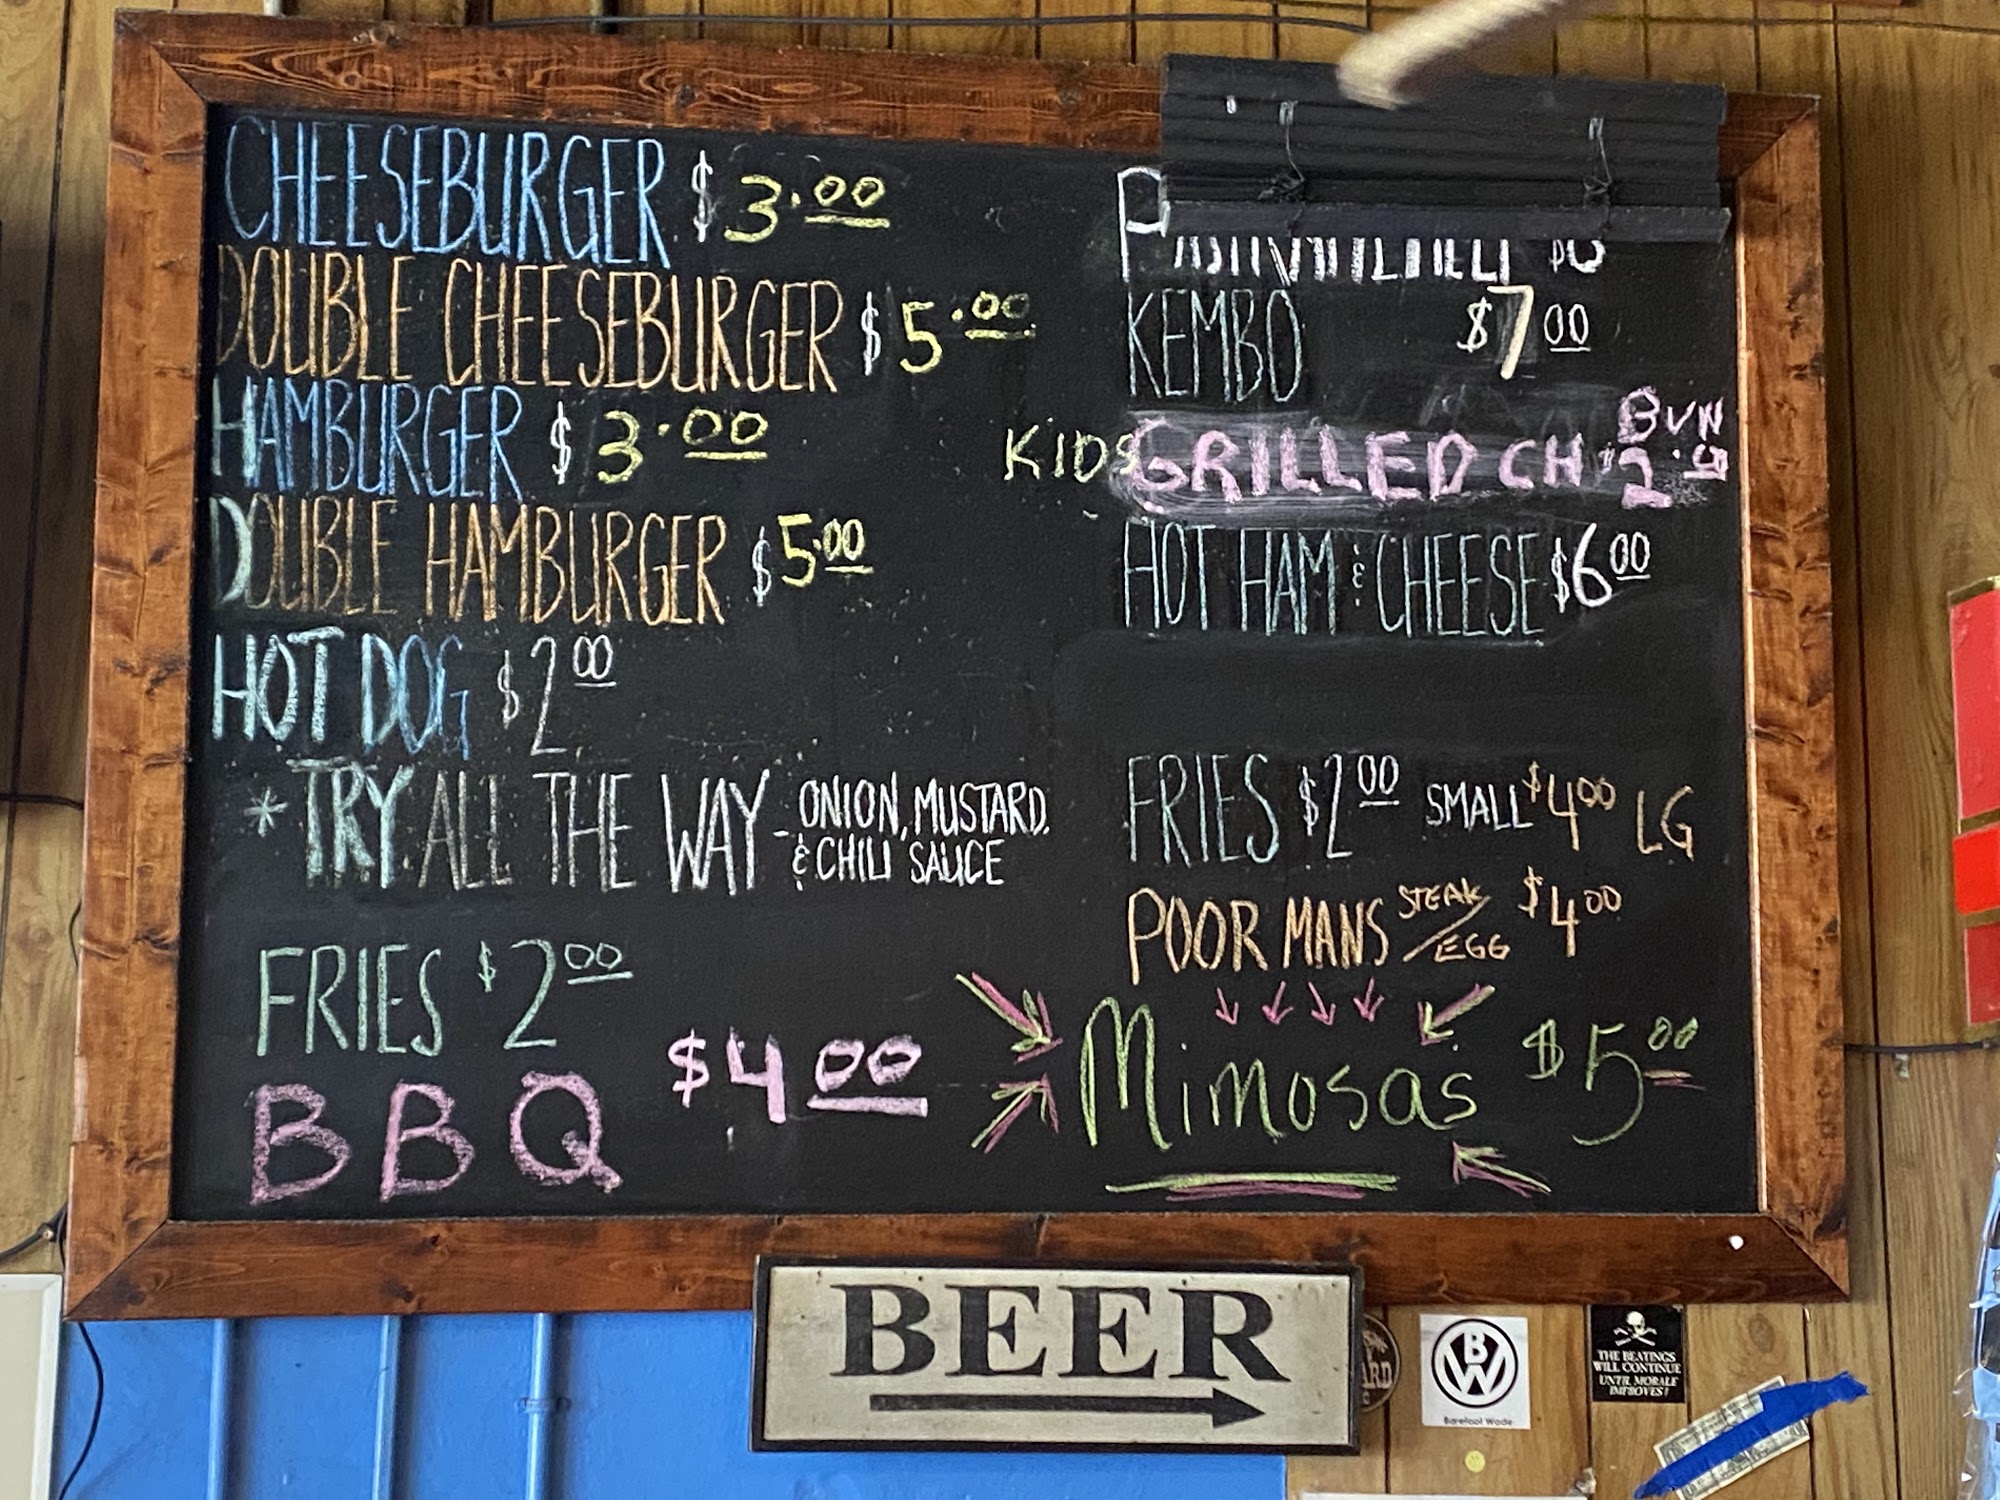 CHEESEBURGER $3.00
DOUBLE CHEESEBURGER $5.00
HAMBURGER $3.00
DOUBLE HAMBURGER $5.00
HOT DOG $2 00
* TRY ALL THE WAY - ONION, MUSTARD,
& CHILI SAUCE
FRIES $2 00
BBQ $4 00
KEMBO $7 00
KIDS GRILLED CH BUN
HOT HAM & CHEESE $6 00
FRIES $2 00 SMALL $4 00 LG
POOR MANS STEAK/EGG $4 00
Mimosas $5 00
BEER
BW
Barefoot Wade
ARD
THE BEATINGS
WILL CONTINUE
UNTIL MORALE
IMPROVES!